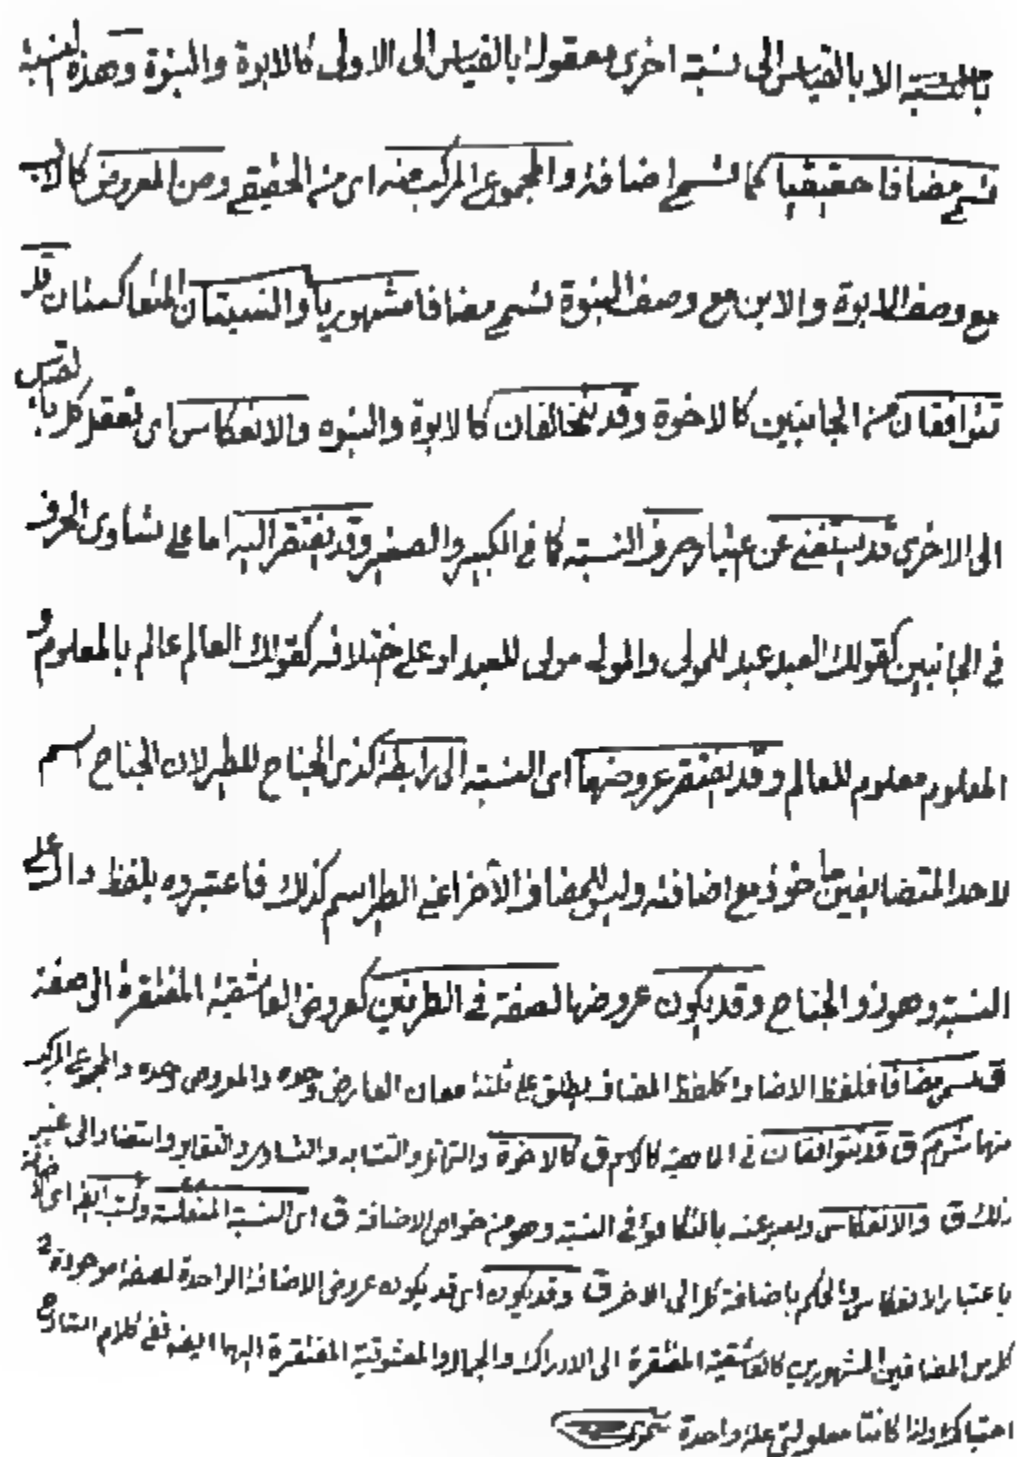 بالنسبة الا بالقياس الى نسبة اخرى معقولة بالقياس الى الاولى كالابوة والبنوة وهذه النسبة
تسمى مضافا حقيقيا كما تسمى اضافة والمجموع المركب منه اى من الحقيقى ومن المعروض كالاب
مع وصف الابوة والابن مع وصف البنوة تسمى مضافا مشهوريا والنسبتان المتعاكستان قد
تتوافقان من الجانبين كالاخوة وقد تتخالفان كالابوة والبنوه والانعكاس اى تعقل كل بالقياس
الى الاخرى قد يستغنى عن اعتبار حرف النسبة كما فى الكبير والصغير وقد يفتقر اليه اما على تساوى الحرف
فى الجانبين كقولك العبد عبد للمولى والمولى مولى للعبد او على اختلافه كقولك العالم عالم بالمعلوم و
المعلوم معلوم للعالم وقد يفتقر عروضها اى النسبة الى رابطة كذى الجناح للطير لان الجناح اسم
لاحد المتضايفين مأخوذ مع اضافته وليس للمضاف الآخر اعنى الطير اسم كذلك فاعتبروه بلفظ دال على
النسبة وهو ذو الجناح وقد يكون عروضها لصفة فى الطرفين كعروض العاشقية المفتقرة الى صفة
ق تسمى مضافا فلفظ الاضافة كلفظ المضاف يطلق على ثلثة معان العارض وحده والمعروض وحده والمجموع المركب
منهما ق قد تتوافقان فى الماهية ق كالاخوة والتماثل والتشابه والتساوى والتقابل والى غير
ذلك ق والانعكاس ويعبر عنه بالتكافؤ فى النسبة وهو من خواص الاضافة ق اى النسبة
باعتبار الانعكاس والحكم باضافة كل الى الاخر ق وقد يكون اى قد يكون عروض الاضافة الواحدة لصفة موجودة
كل من المضافين المشهوريين كالعاشقية المفتقرة الى الادراك والجمال والمعشوقية المفتقرة اليها ايضا ففى كلام الشارح
احتباك ولذا كانتا معلولتى علة واحدة